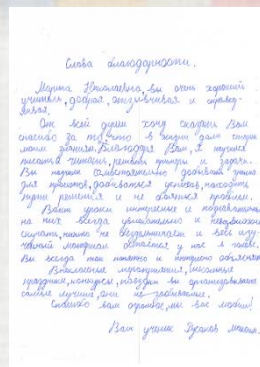 Слова благодарности.
Марина Николаевна, вы очень хороший
учитель, добрая, отзывчивая и справед-
ливая.
От всей души хочу сказать Вам
спасибо за то, что в жизни дали старт
моим знаниям. Благодаря Вам, я научился
писать, читать, решать примеры и задачи.
Вы научили самостоятельно добывать
для проектов, добиваться успехов, находить
пути решения и не бояться проблем.
Ваши уроки интересные и
на них всегда увлекательно и
скучать, никто не и весь изу-
ченный материал остаётся у нас в голове.
Вы всегда так понятно и интересно объясняете.
Внеклассные мероприятия, школьные
праздники, конкурсы, поездки вы организовываете
самые лучшие, они не забываемые.
Спасибо вам огромное, мы вас любим!
Ваш ученик